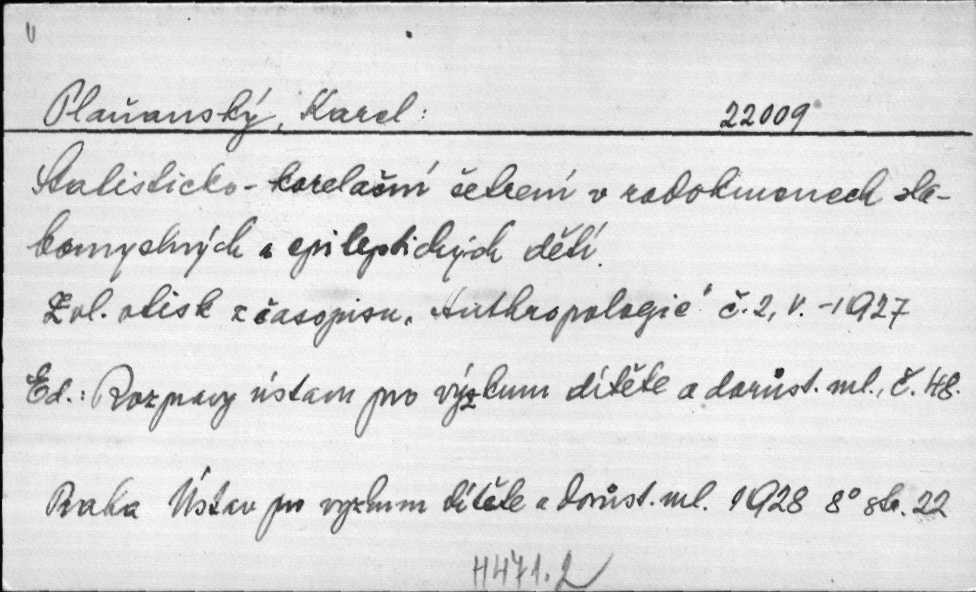 Plaňanský, Karel: 22009
Statisticko-korelační šetření v rodokmenech sla-
bomyslných a epileptických dětí.
Zvl. otisk z časopisu „Anthropologie“ č. 2, V. - 1927
Ed.: Rozpravy ústavu pro výzkum dítěte a dorůst. ml., č. 48.
Praha Ústav pro výzkum dítěte a dorůst. ml. 1928 8° str. 22
H471.2